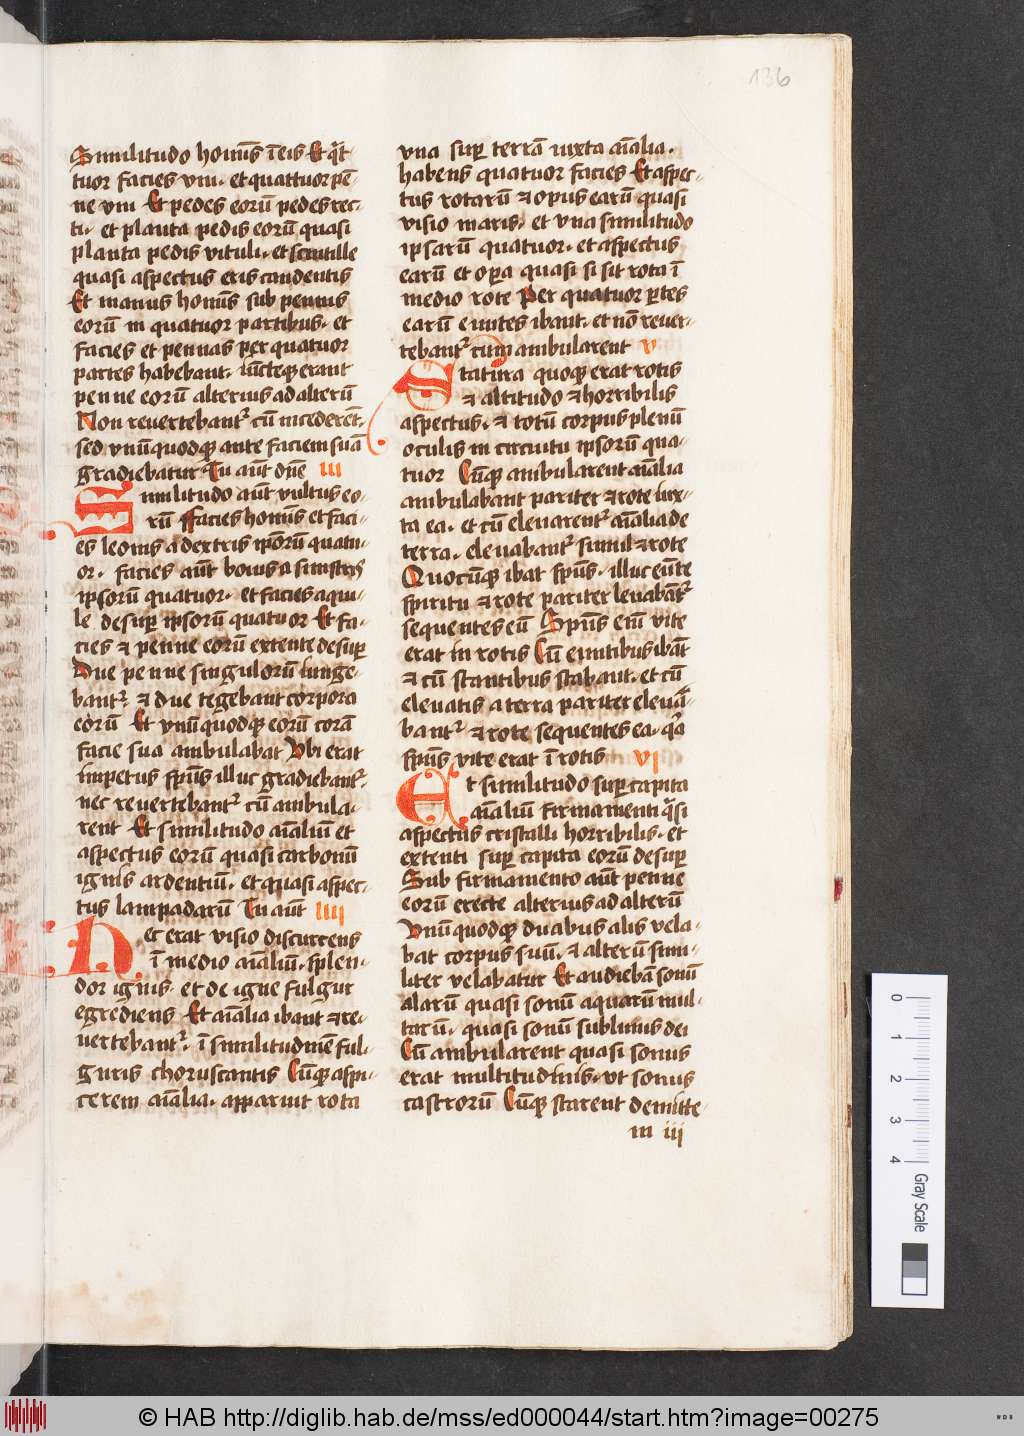 136
Similitudo homīs ī eis Et q̄t-
tuor facies vni · et quattuor pē-
ne vni Et pedes eorū pedes rec-
ti · et planta pedis eorū quasi
planta pedis vituli · et scintille
quasi aspectus eris candentis
Et manus homīs sub pennis
eorū in quatuor partibus · et
facies et pennas per quatuor
partes habebant · iūcteqꝫ erant
penne eorū alterius ad alterū
Non reuertebant᷑ cū incederēt ·
sed vnūquodqꝫ ante faciem suā
gradiebatur Tu aūt dn̄e III
Similitudo aūt vultus eo-
rū Facies homīs et faci-
es leonis a dextris ip̄orū quatu-
or · facies aūt bouis a sinistris
ipsorū quatuor · et facies aqui-
le desup̱ ipsorū quatuor Et fa-
cies ⁊ penne eorū extente desup̱
Due penne singulorū iunge-
bant᷑ ⁊ due tegebant corpora
eorū Et vnūquodqꝫ eorū corā
facie sua ambulabat Vbi erat
impetus sp̄us illuc gradiebant᷑
nec reuertebant᷑ cū ambula-
rent Et similitudo aīaliū et
aspectus eorū quasi carbonū
ignis ardentiū · et quasi aspec-
tus lampadarū Tu aūt IIII
Hec erat visio discurrens
ī medio aīaliū · splen-
dor ignis · et de igne fulgur
egrediens Et aīalia ibant ⁊ re-
uertebant᷑ · ī similitudinē ful-
guris choruscantis Cūqꝫ aspi-
cerem aīalia · apparuit rota
vna sup̱ terrā iuxta aīalia ·
habens quatuor facies Et aspec-
tus rotarū ⁊ opus earū quasi
visio maris · et vna similitudo
ipsarū quatuor · et aspectus
earū et op̱a quasi si sit rota ī
medio rote Per quatuor p̱tes
earū euntes ibant · et nō reuer-
tebant᷑ cum ambularent V
Statura quoqꝫ erat rotis
⁊ altitudo ⁊ horribilis
aspectus · ⁊ totū corpus plenū
oculis in circuitu ipsorū qua-
tuor Cūqꝫ ambularent aīalia
ambulabant pariter ⁊ rote iux-
ta ea · et cū eleuarent᷑ aīalia de
terra · eleuabant᷑ simul ⁊ rote
Quocūqꝫ ibat sp̄us · illuc eūte
spiritu ⁊ rote pariter leuabāt᷑
sequentes eū Sp̄us em̄ vite
erat in rotis Cū euntibus ibāt
⁊ cū stantibus stabant · et cū
eleuatis a terra pariter eleua-
bant᷑ ⁊ rote sequentes ea · q̄a
sp̄us vite erat ī rotis VI
Et similitudo sup̱ capita
aīaliū firmamenti q̄si
aspectus cristalli horribilis · et
extenti sup̱ capita eorū desup̱
Sub firmamento aūt penne
eorū erecte alterius ad alterū
Vnūquodqꝫ duabus alis vela-
bat corpus suū · ⁊ alterū simi-
liter velabatur Et audiebā sonū
alarū quasi sonū aquarū mul-
tarū · quasi sonū sublimis dei
Cū ambularent quasi sonus
erat multitudinis · vt sonus
castrorū Cūqꝫ starent demitte-
m iij
0 1 2 3 4
Gray Scale
© HAB http://diglib.hab.de/mss/ed000044/start.htm?image=00275